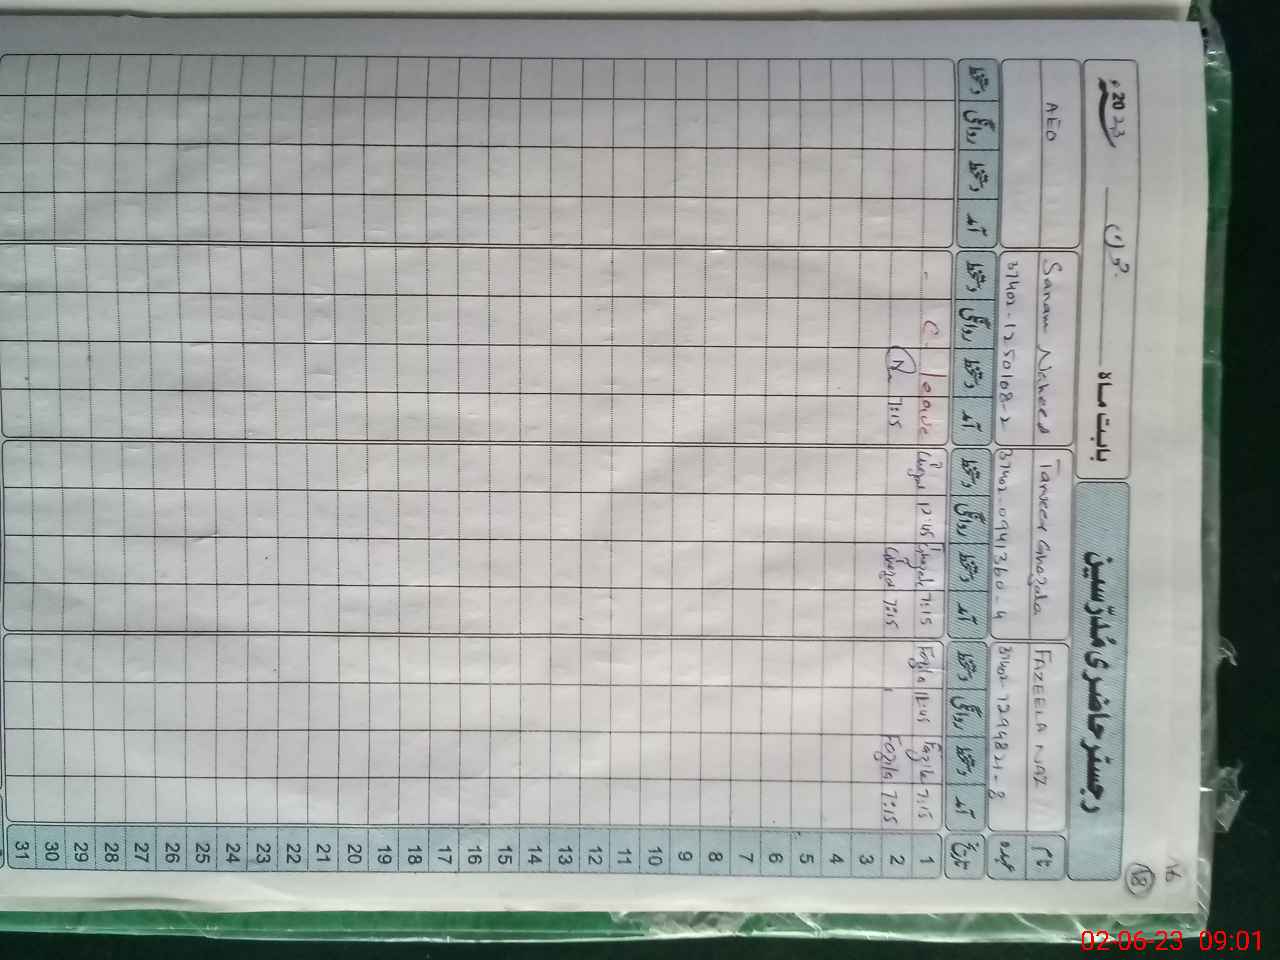 رجسٹر حاضری مُدرّسین
بابت ماہ جون 2023ء
18
نام FAZEELA NAZ Tanveer Ghazala Sanam Naheed AEO
عہدہ 37402-7294821-8 37402-0941360-4 37402-1250168-2
تاریخ آمد دستخط روانگی دستخط آمد دستخط روانگی دستخط آمد دستخط روانگی دستخط آمد دستخط روانگی دستخط
1 7:15 Fazila 12:45 Fazila 7:15 Ghazala 12:45 Ghazal C. leave
2 7:15 Fazila 7:15 Ghazal 7:15 N
3
4
5
6
7
8
9
10
11
12
13
14
15
16
17
18
19
20
21
22
23
24
25
26
27
28
29
30
31
02-06-23 09:01